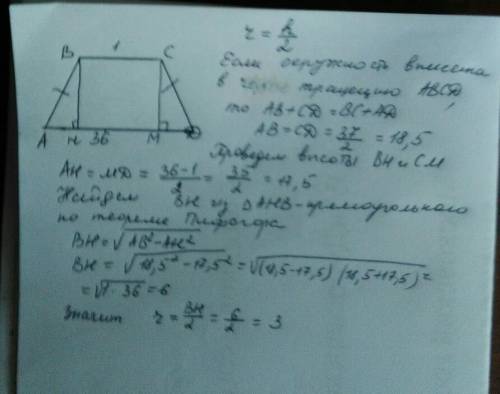 r = h/2
B 1 C
Если окружность вписана
в трапецию ABCD,
то AB+CD = BC+AD
AB = CD = 37/2 = 18,5
A H 36 M D
Проведем высоты BH и CM
AH = MD = (36-1)/2 = 35/2 = 17,5
Найдем BH из ΔAHB-прямоугольного
по теореме Пифагора
BH = √(AB² - AH²)
BH = √(18,5² - 17,5²) = √((18,5-17,5)(18,5+17,5)) =
= √(1·36) = 6
Значит r = BH/2 = 6/2 = 3